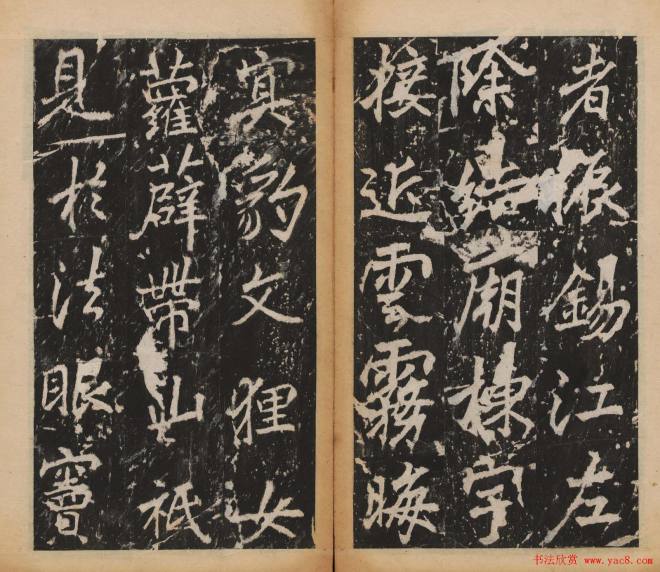 者振錫江左
除結廟棟宇
接近雲霧晦
冥豹文狸女
蘿薜帶山祇
見於法眼竇
书法欣赏 www.yac8.com